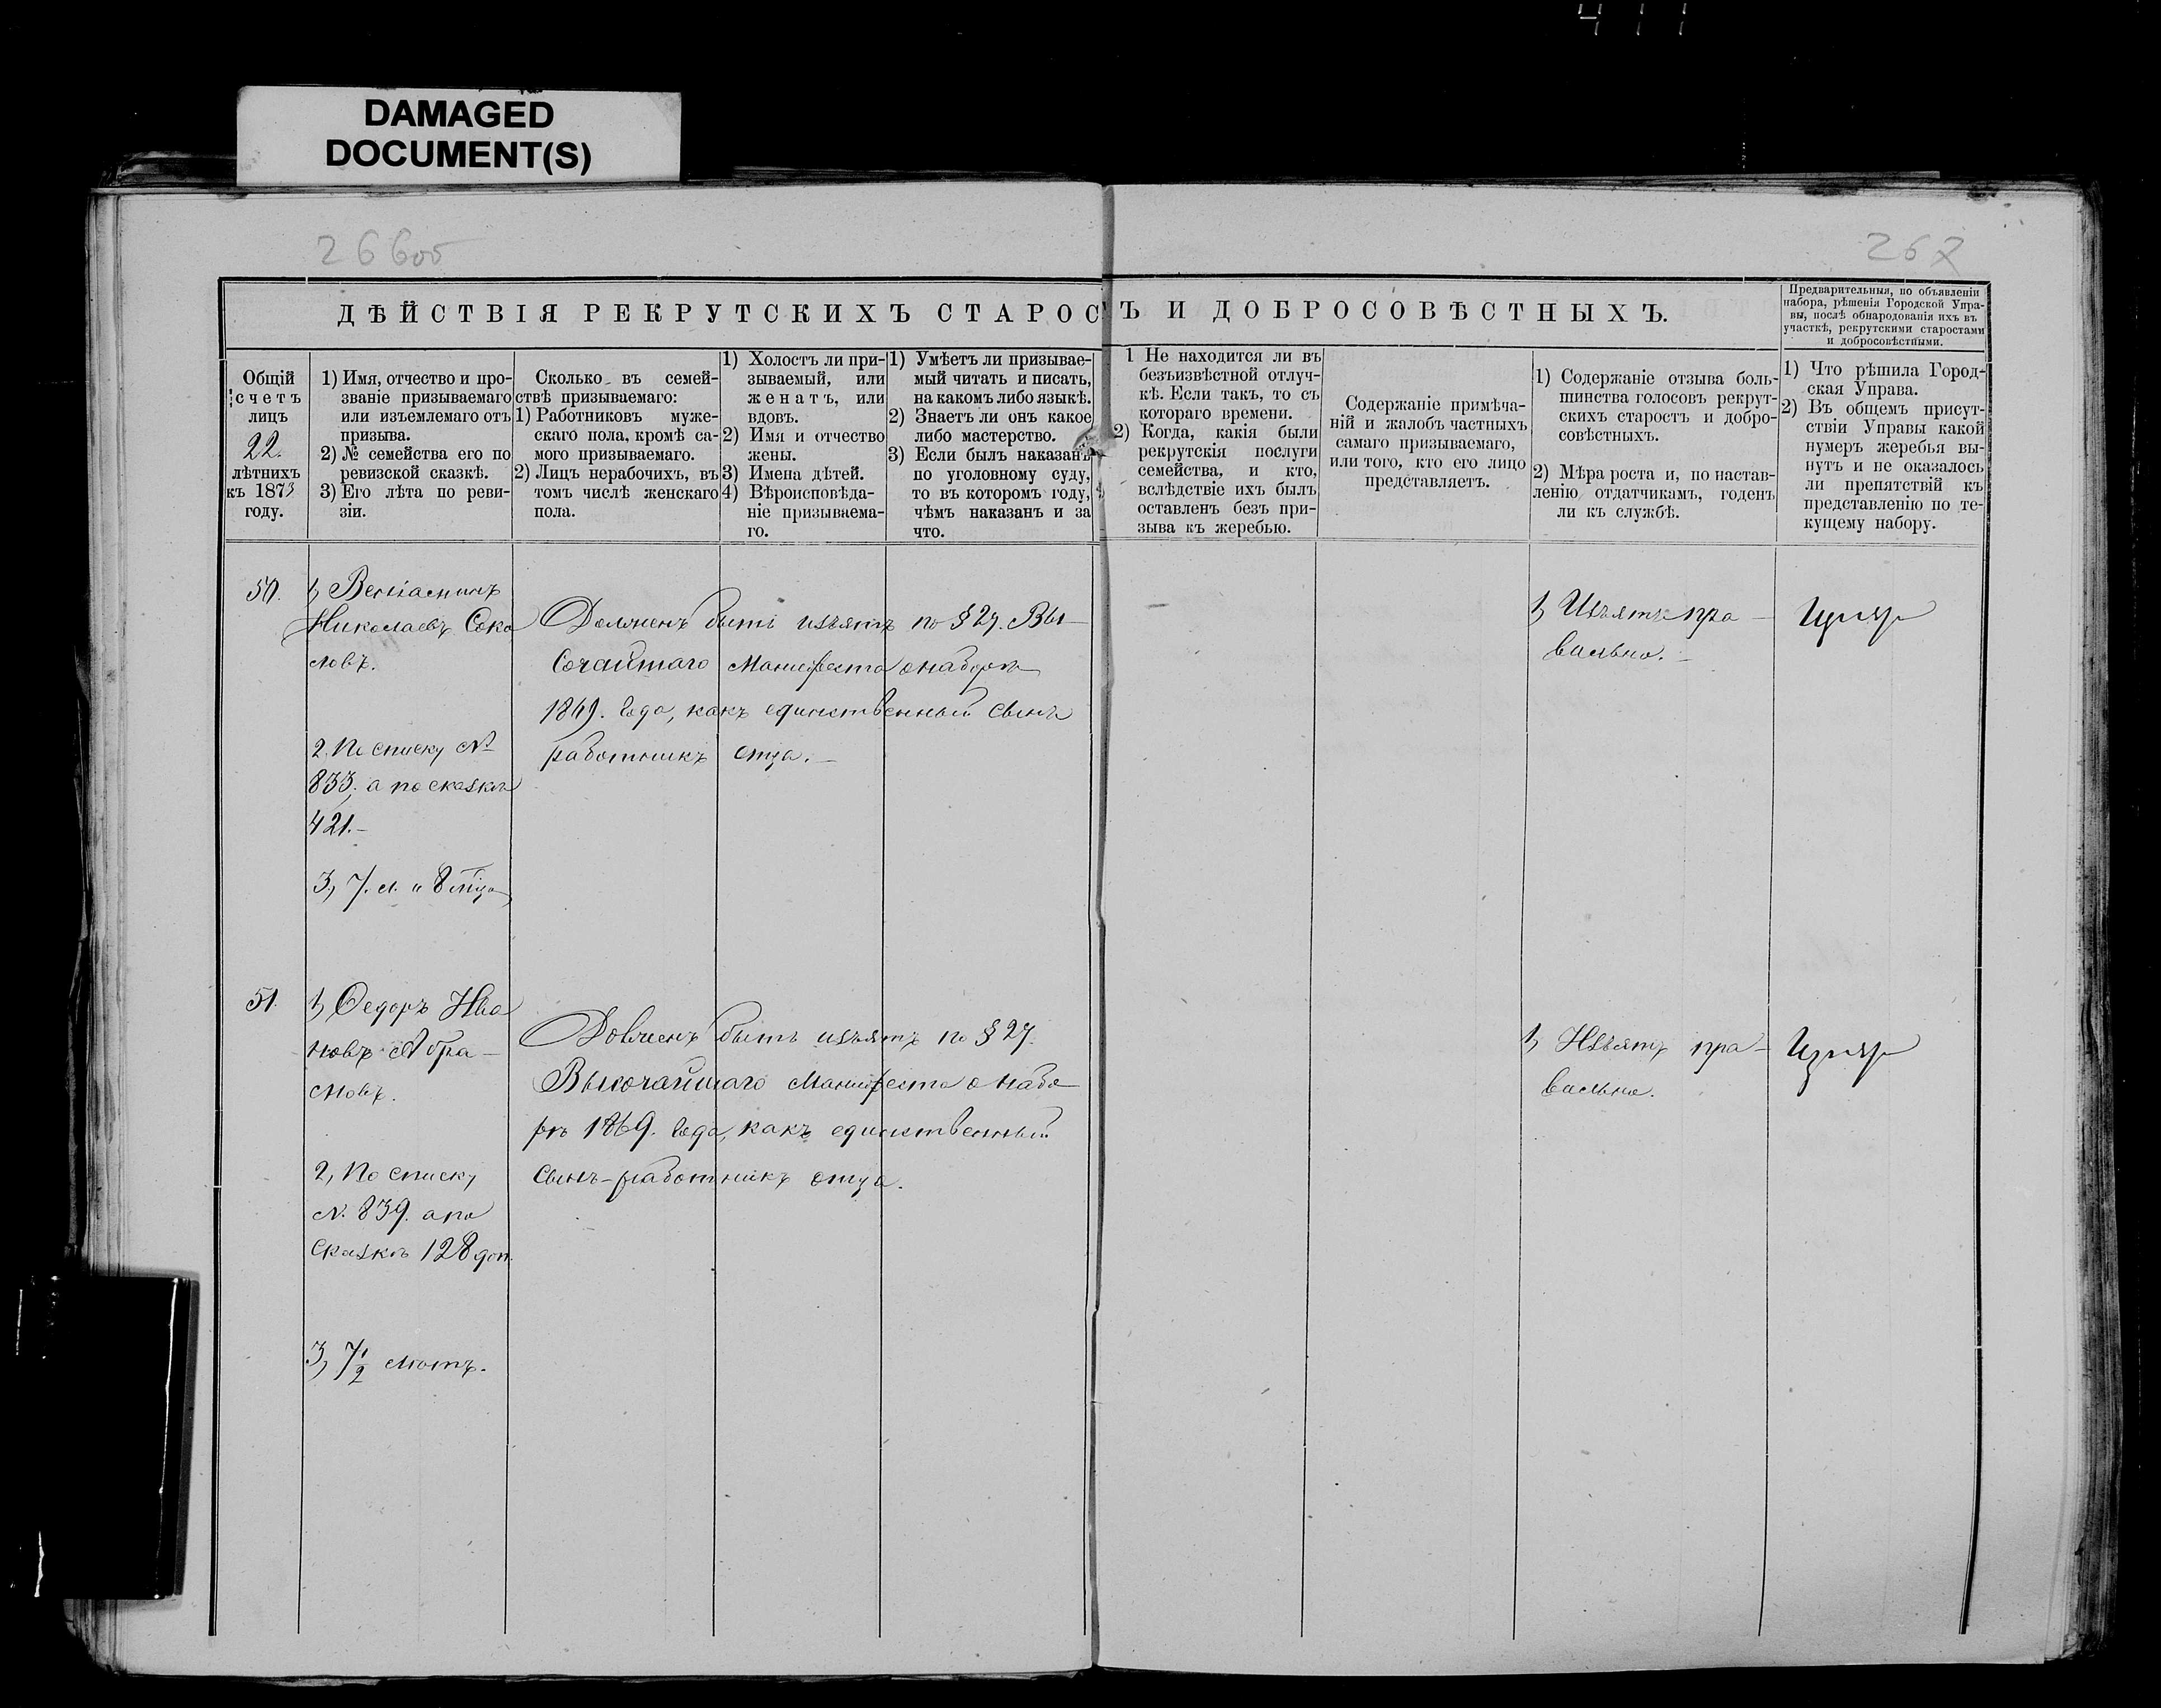 411
DAMAGED
DOCUMENT(S)
266об
267
ДѢЙСТВІЯ РЕКРУТСКИХЪ СТАРОСТЪ И ДОБРОСОВѢСТНЫХЪ.
Предварительныя, по объявленіи
набора, рѣшенія Городской Упра-
вы, послѣ обнародованія ихъ въ
участкѣ, рекрутскими старостами
и добросовѣстными.
Общій
счетъ
лицъ
22.
лѣтнихъ
къ 1873
году.
1) Имя, отчество и про-
званіе призываемаго
или изъемлемаго отъ
призыва.
2) № семейства его по
ревизской сказкѣ.
3) Его лѣта по реви-
зіи.
Сколько въ семей-
ствѣ призываемаго:
1) Работниковъ муже-
скаго пола, кромѣ са-
мого призываемаго.
2) Лицъ нерабочихъ, въ
томъ числѣ женскаго
пола.
1) Холостъ ли при-
зываемый, или
женатъ, или
вдовъ.
2) Имя и отчество
жены.
3) Имена дѣтей.
4) Вѣроисповѣда-
ніе призываема-
го.
1) Умѣетъ ли призывае-
мый читать и писать,
на какомъ либо языкѣ.
2) Знаетъ ли онъ какое
либо мастерство.
3) Если былъ наказанъ
по уголовному суду,
то въ которомъ году,
чѣмъ наказанъ и за
что.
1 Не находится ли въ
безъизвѣстной отлуч-
кѣ. Если такъ, то съ
котораго времени.
2) Когда, какія были
рекрутскія послуги
семейства, и кто,
вслѣдствіе ихъ былъ
оставленъ безъ при-
зыва къ жеребью.
Содержаніе примѣча-
ній и жалобъ частныхъ
самаго призываемаго,
или того, кто его лицо
представляетъ.
1) Содержаніе отзыва боль-
шинства голосовъ рекрут-
скихъ старостъ и добро-
совѣстныхъ.
2) Мѣра роста и, по настав-
ленію отдатчикамъ, годенъ
ли къ службѣ.
1) Что рѣшила Город-
ская Управа.
2) Въ общемъ присут-
ствіи Управы какой
нумеръ жеребья вы-
нутъ и не оказалось
ли препятствій къ
представленію по те-
кущему набору.
50.
1, Веніаминъ
Николаевъ Соко
ловъ.
2, По списку №
833, а по сказкѣ
421.
3, 7. л. и 8 мѣца
Долженъ быть изъятъ по § 27. Вы-
сочайшаго Манифеста о наборѣ
1869. года, какъ единственный сынъ
работникъ отца.
1, Изъятъ пра-
вильно.
Изъятъ
51.
1, Ѳедоръ Ива
новъ Абра-
мовъ.
2, По списку
№. 839. а по
сказкѣ 128 доп.
3, 7 1/2 лѣтъ.
Долженъ быть изъятъ по § 27.
Высочайшаго Манифеста о набо
рѣ 1869. года, какъ единственный
сынъ-работникъ отца.
1, Изъятъ пра-
вильно.
Изъятъ